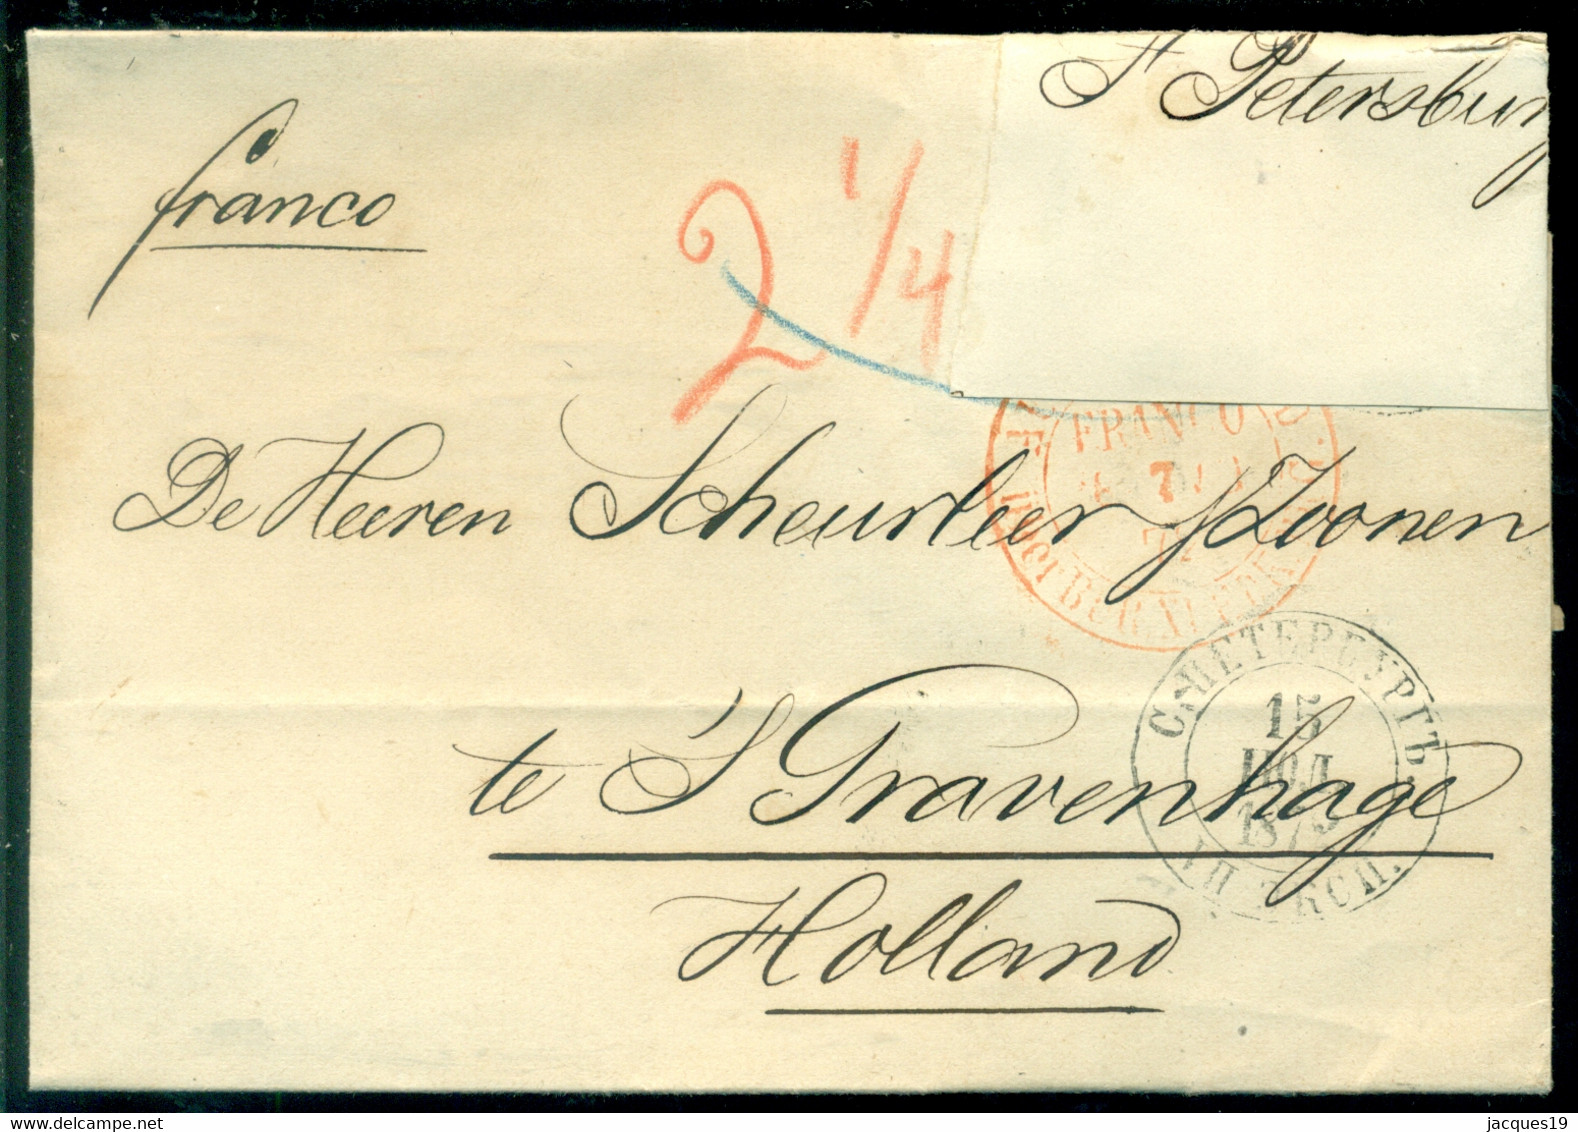 St Petersburg
franco
2 1/4
FRANCO
7
De Heeren Scheurleer & Zoonen
С.ПЕТЕРБУРГЪ.
15
ІЮЛ
1873
te S'Gravenhage
Holland
jacques19